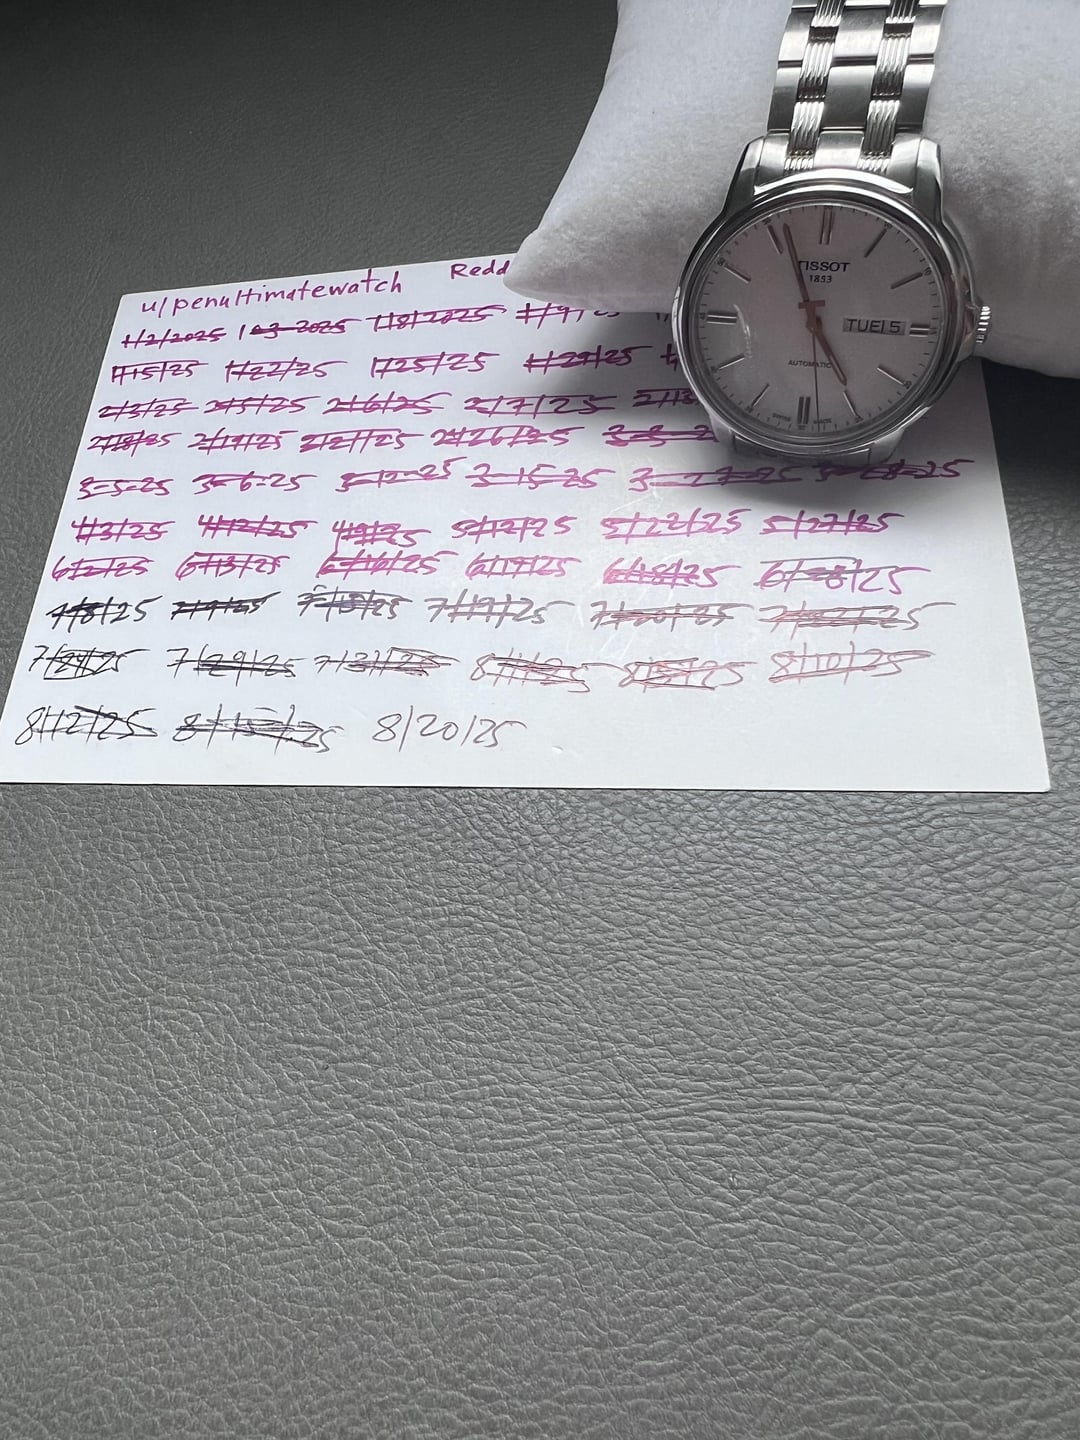 u/penultimatewatch Redd
1/2/2025 1-3-2025 1/8/2025 1/9/25
1/15/25 1/22/25 1/25/25 1/29/25
2/3/25 2/5/25 2/6/25 2/7/25 2/13
2/18/25 2/19/25 2/21/25 2/26/25 3-3-2
3-5-25 3-6-25 3-12-25 3-15-25 3-27-25 3-28-25
4/3/25 4/12/25 5/12/25 5/22/25 5/27/25
6/2/25 6/13/25 6/16/25 6/17/25 6/18/25
7/8/25 7/9/25 7/17/25 7/20/25 7/22/25
7/29/25 7/31/25 8/1/25 8/5/25 8/10/25
8/12/25 8/15/25 8/20/25
TISSOT
1853
TUE 5
AUTOMATIC
SWISS MADE